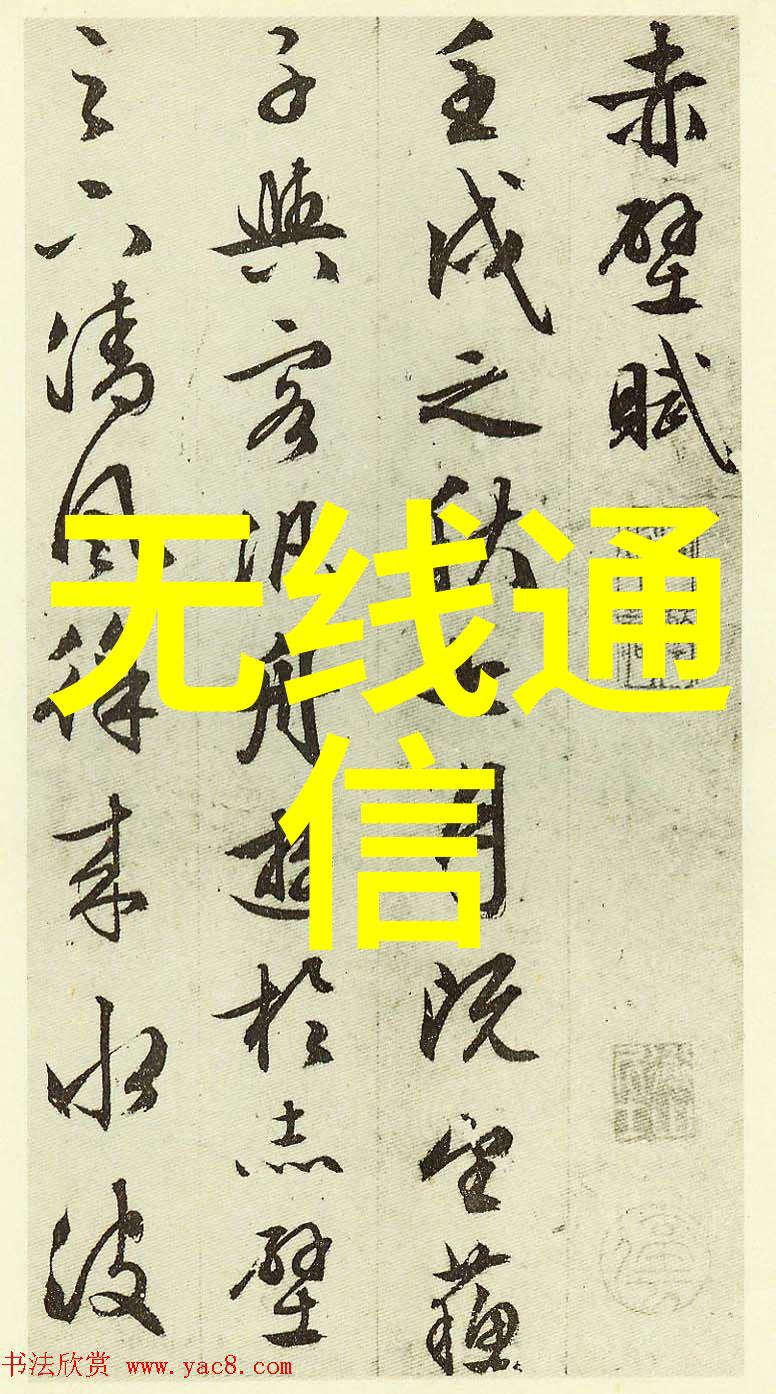 赤壁賦
壬戌之秋七月既望蘇
子與客汎舟遊於赤壁
之下清風徐來水波
无线通
信
书法欣赏 www.yac8.com